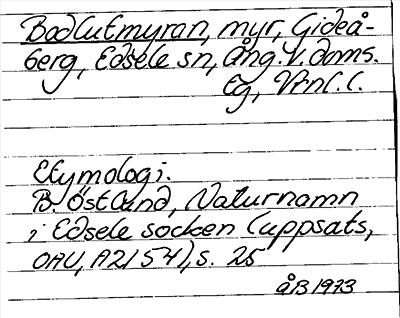 Bodlutmyran, myr, Gideå-
berg, Edsele sn, Ång. V. doms.
Eg, Vtnl. l.
Etymologi.
B. Östlund, Naturnamn
i Edsele socken (uppsats,
OAU, A2154), s. 25
åB 1973